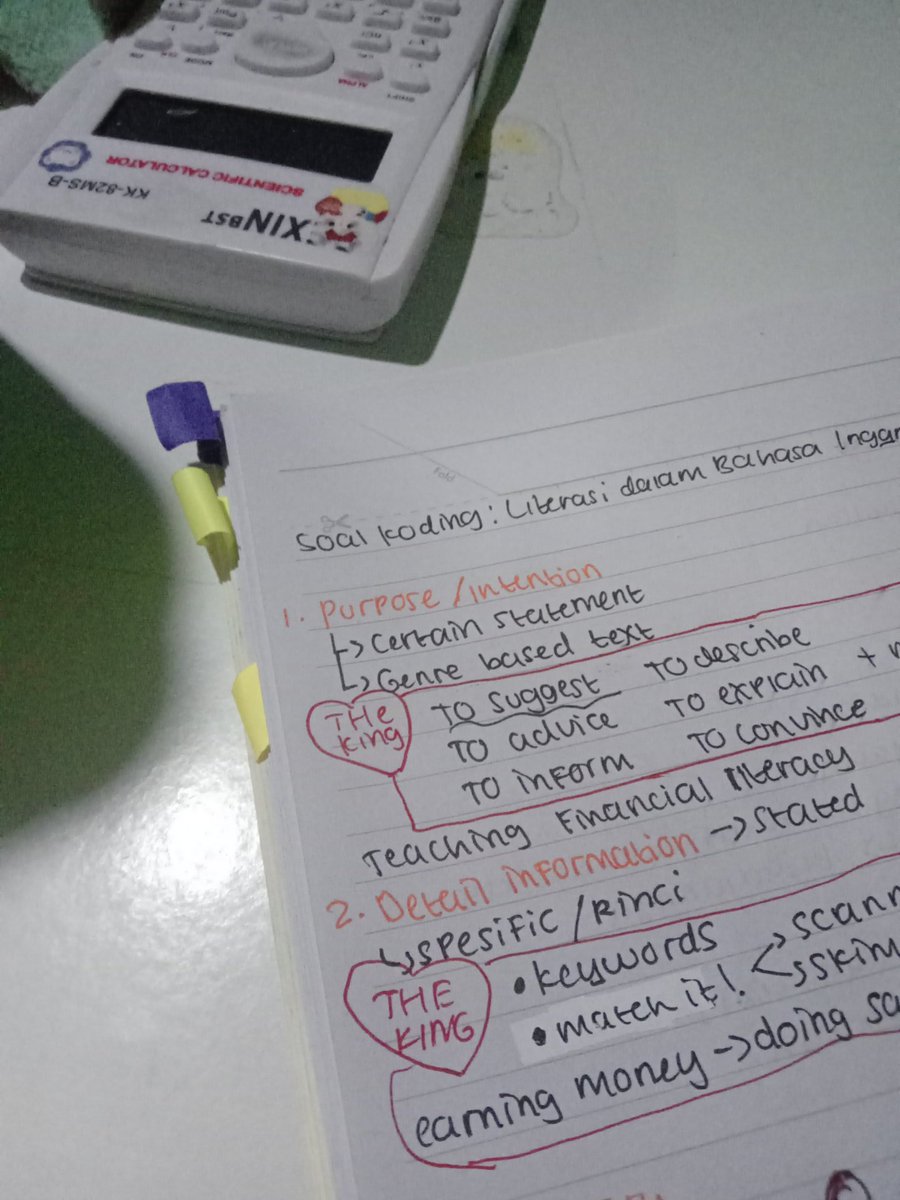 XINBST
KK-82MS-B
SCIENTIFIC CALCULATOR
SHIFT
ALPHA
MODE
ON
Fold
Soal Koding : Literasi dalam Bahasa Inggr
1. Purpose / Intention
↳ Certain statement
↳ Genre based text
THE King
TO suggest TO describe
TO advice TO explain +
TO inform TO convince
Teaching Financial literacy
2. Detail information → stated
↳ spesific / Rinci
THE KING
• keywords
scann
• match it!
skim
earning money → doing